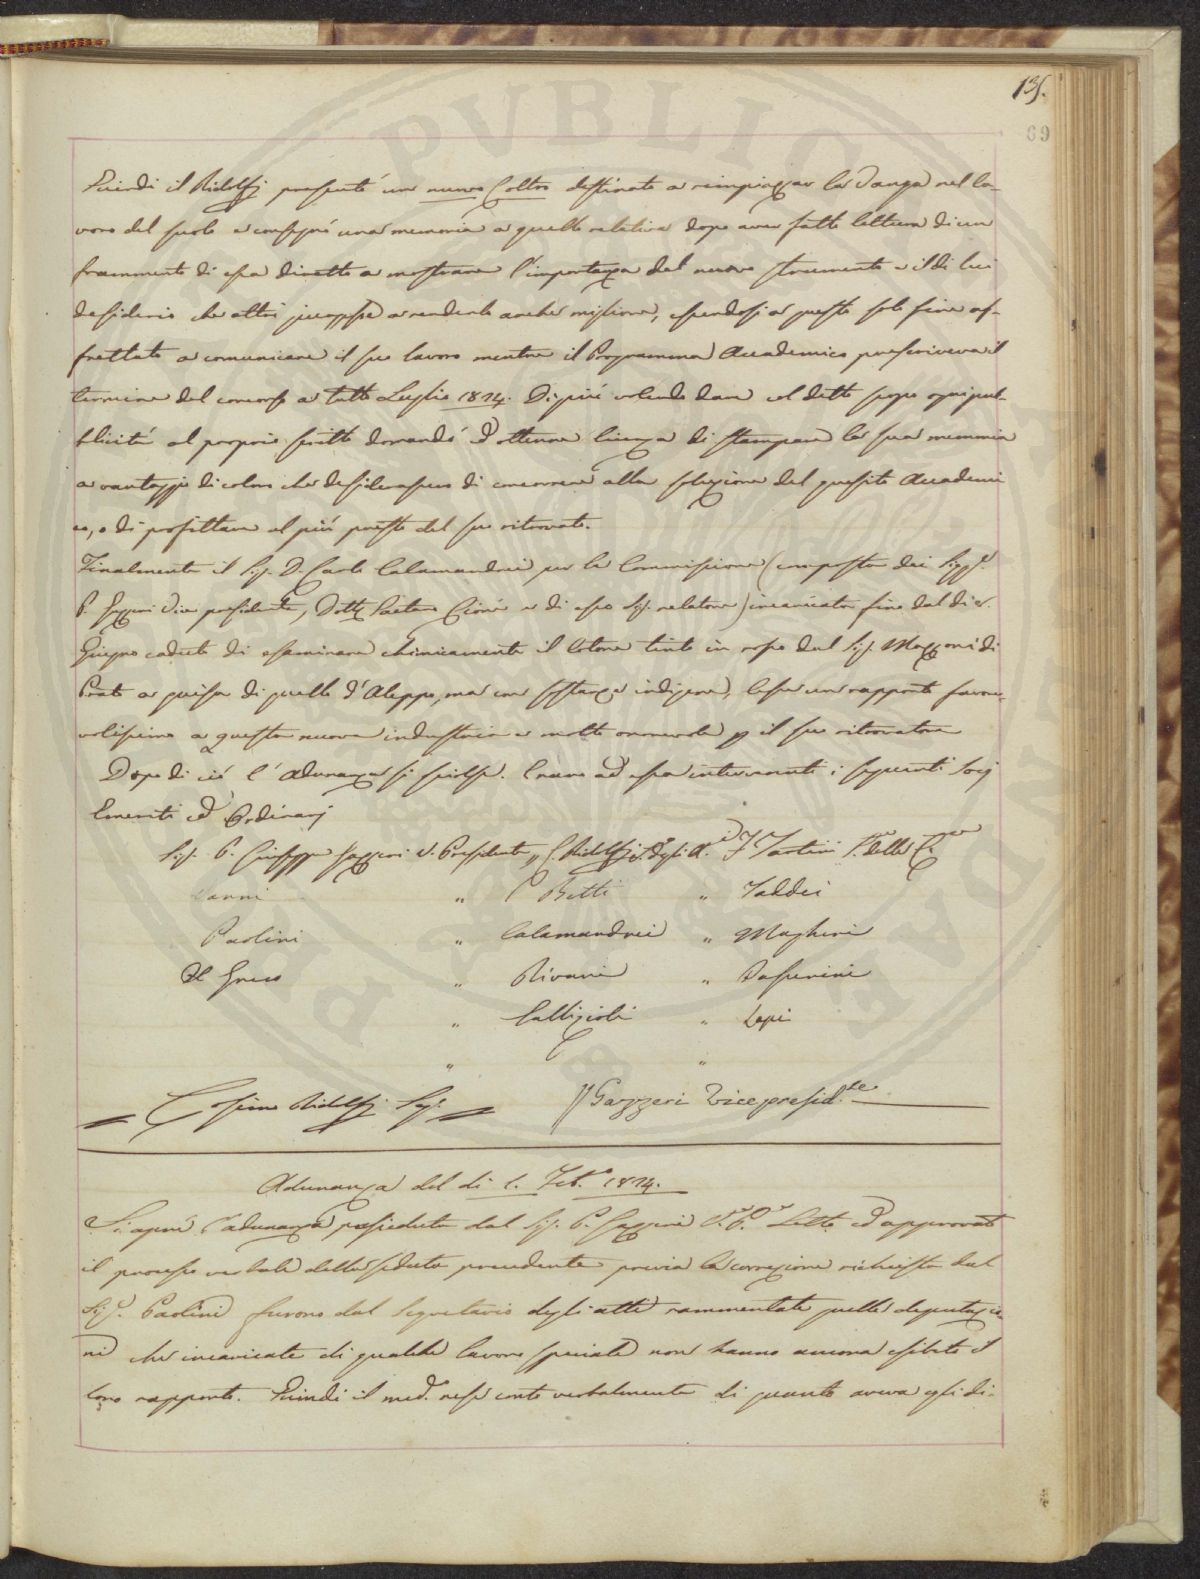 135.
69
Quindi il Ridolfi presentò un nuovo Coltro destinato a rimpiazzar la Vanga nel la-
voro del suolo e consegnò una memoria a quello relativa dopo aver fatto lettura di un
frammento di essa diretto a mostrare l'importanza del nuovo strumento e il di lui
desiderio che altri giungesse a renderlo anche migliore, essendosi a questo solo fine af-
frettato a comunicare il suo lavoro mentre il Programma Accademico prescriveva il
termine del concorso a tutto Luglio 1824. Di più volendo dare col detto scopo ogni pub-
blicità al proprio scritto domandò ed ottenne licenza di stampare la sua memoria
a vantaggio di coloro che desiderassero di concorrere alla soluzione del quesito Accademi
co, o di profittare al più presto del suo ritrovato.
Finalmente il Sig. D. Carlo Calamandrei per la Commissione (composta dei Sigg.i
P. Gazzeri Vice presidente, Dott. Gaetano Cioni e di esso Sig. relatore) incaricata fino dal dì
Giugno caduto di esaminare chimicamente il Cotone tinto in rosso dal Sig. Mazzoni di
Prato a guisa di quello d'Aleppo, ma con sostanze indigene, lesse un rapporto favore-
volissimo a questa nuova industria e molto onorevole p il suo ritrovatore
Dopo di ciò l'Adunanza si sciolse. Erano ad essa intervenuti i seguenti Socj
Emeriti ed Ordinarj
Sig. P. Giuseppe Gazzeri V. Presidente " C. Ridolfi S. degli A. " F Tartini S. delle C.
Nanni " C Betti " Taddei
Paolini " Calamandrei " Magheri
Del Greco " Rivani " Passerini
" Gallizioli " Lapi
" "
Cosimo Ridolfi Seg.
G Gazzeri Vicepresid.te
Adunanza del dì 1. Feb.o 1824.
Si aprì l'adunanza presieduta dal Sig. P. Gazzeri V. P. Letto ed approvato
il processo verbale della seduta precedente previa la correzione richiesta dal
Sig. Paolini furono dal Segretario degli atti rammentate quelle deputazio
ni che incaricate di qualche lavoro speciale non hanno ancora esibito il
loro rapporto. Quindi il med.o rese conto verbalmente di quanto aveva egli di-